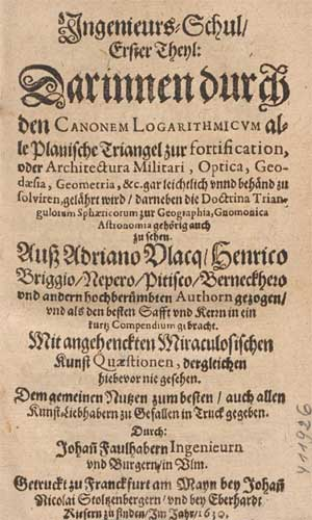 Ingenieurs-Schul/
Erster Theyl:
Darinnen durch
den CANONEM LOGARITHMICVM al-
le Planische Triangel zur fortification,
oder Architectura Militari, Optica, Geo-
dæsia, Geometria, &c. gar leichtlich vnnd behänd zu
solviren, gelährt wird / darneben die Doctrina Trian-
gulorum Sphæricorum zur Geographia, Gnomonica
Astronomia gehörig auch
zu sehen.
Auß Adriano Vlacq/ Henrico
Briggio/ Nepero/ Pitisco/ Berneckhero
vnd andern hochberümbten Authorn gezogen/
vnd als den besten Safft vnd Kern in ein
kurtz Compendium gebracht.
Mit angehenckten Miraculosischen
Kunst Quæstionen, dergleichen
hiebevor nie gesehen.
Dem gemeinen Nutzen zum besten / auch allen
Kunst-Liebhabern zu Gefallen in Truck gegeben.
Durch:
Johañ Faulhabern Ingenieurn
vnd Burgern in Vlm.
Getruckt zu Franckfurt am Mayn bey Johañ
Nicolai Stoltzenbergern / vnd bey Eberhardt
Kiesern zu finden / Im Jahr / 1630.